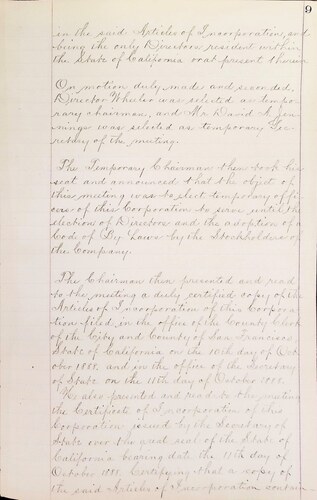 9
in the said Articles of Incorporation, and
being the only Directors resident within
the State of California and present therein
On motion duly made and seconded,
Director Wheeler was selected as tempo-
rary chairman, and Mr. David A. Jen-
nings was selected as temporary Sec-
retary of the meeting.
The Temporary Chairman then took his
seat and announced that the object of
this meeting was to elect temporary offi-
cers of this Corporation to serve until the
election of Directors and the adoption of a
Cod of By Laws by the Stockholders of
the Company.
The Chairman then presented and read
to the meeting a duly certified copy of the
Articles of Incorporation of this Corpora-
tion filed in the office of the County Clerk
of the City and County of San Francisco
State of California on the 10th day of Oct-
ober 1888. and in the office of the Secretary
of State on the 11th day of October 1888.
He also presented and read to the meeting
the Certificate of Incorporation of this
Corporation issued by the Secretary of
State over the great seal of the State of
California bearing date the 11th day of
October 1888. Certifying that a copy of
the said Articles of Incorporation contain